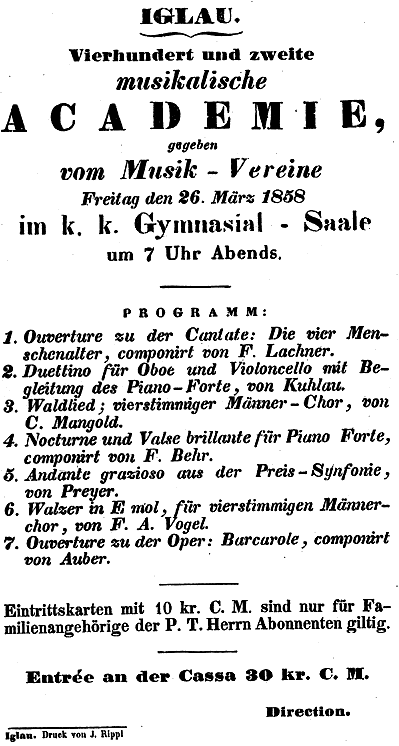 IGLAU.
Vierhundert und zweite
musikalische
ACADEMIE,
gegeben
vom Musik - Vereine
Freitag den 26. März 1858
im k. k. Gymnasial - Saale
um 7 Uhr Abends.
PROGRAMM:
1. Ouverture zu der Cantate: Die vier Men-
schenalter, componirt von F. Lachner.
2. Duettino für Oboe und Violoncello mit Be-
gleitung des Piano-Forte, von Kuhlau.
3. Waldlied; vierstimmiger Männer-Chor, von
C. Mangold.
4. Nocturne und Valse brillante für Piano Forte,
componirt von F. Behr.
5. Andante grazioso aus der Preis-Synfonie,
von Preyer.
6. Walzer in E mol, für vierstimmigen Männer-
chor, von F. A. Vogel.
7. Ouverture zu der Oper: Barcarole, componirt
von Auber.
Eintrittskarten mit 10 kr. C. M. sind nur für Fa-
milienangehörige der P. T. Herrn Abonnenten giltig.
Entrée an der Cassa 30 kr. C. M.
Direction.
Iglau. Druck von J. Rippl